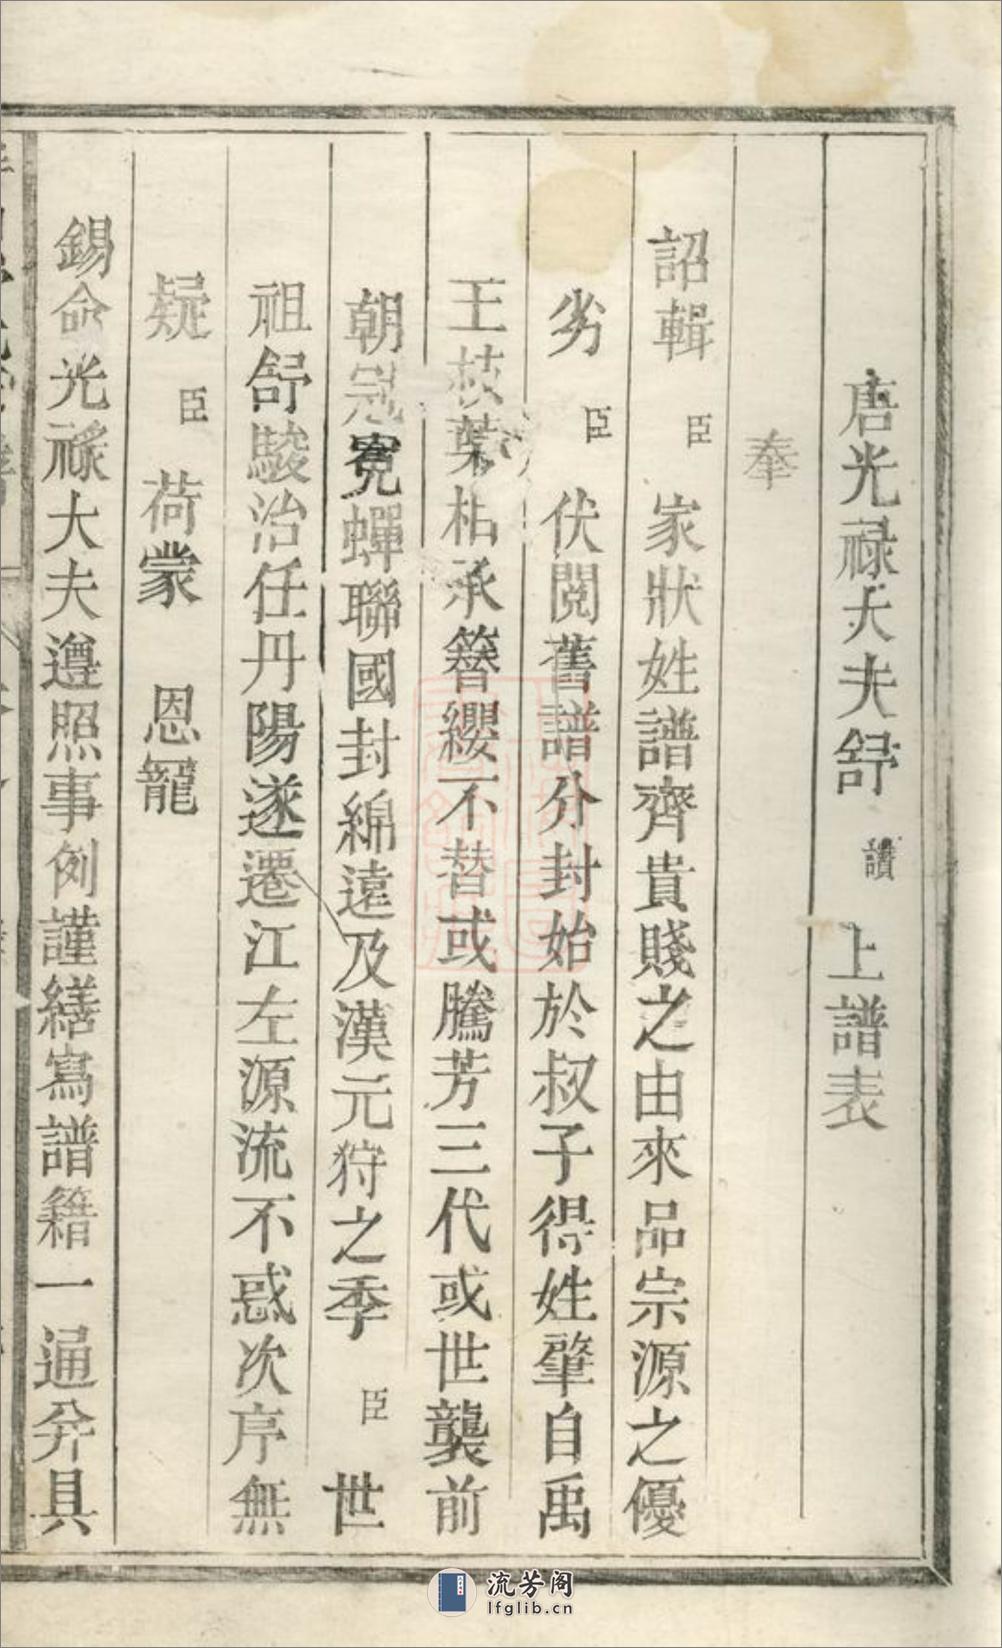 唐光祿大夫舒 讚 上譜表
奉
詔輯 臣 家狀姓譜齊貴賤之由來品宗源之優
劣 臣 伏閱舊譜分封始於叔子得姓肇自禹
王枝葉相承簪纓不替或騰芳三代或世襲前
朝冠冕蟬聯國封綿遠及漢元狩之季 臣 世
祖舒駿治任丹陽遂遷江左源流不惑次序無
疑 臣 荷蒙 恩寵
錫命光祿大夫遵照事例謹繕寫譜籍一通并具
流芳阁
lfglib.cn